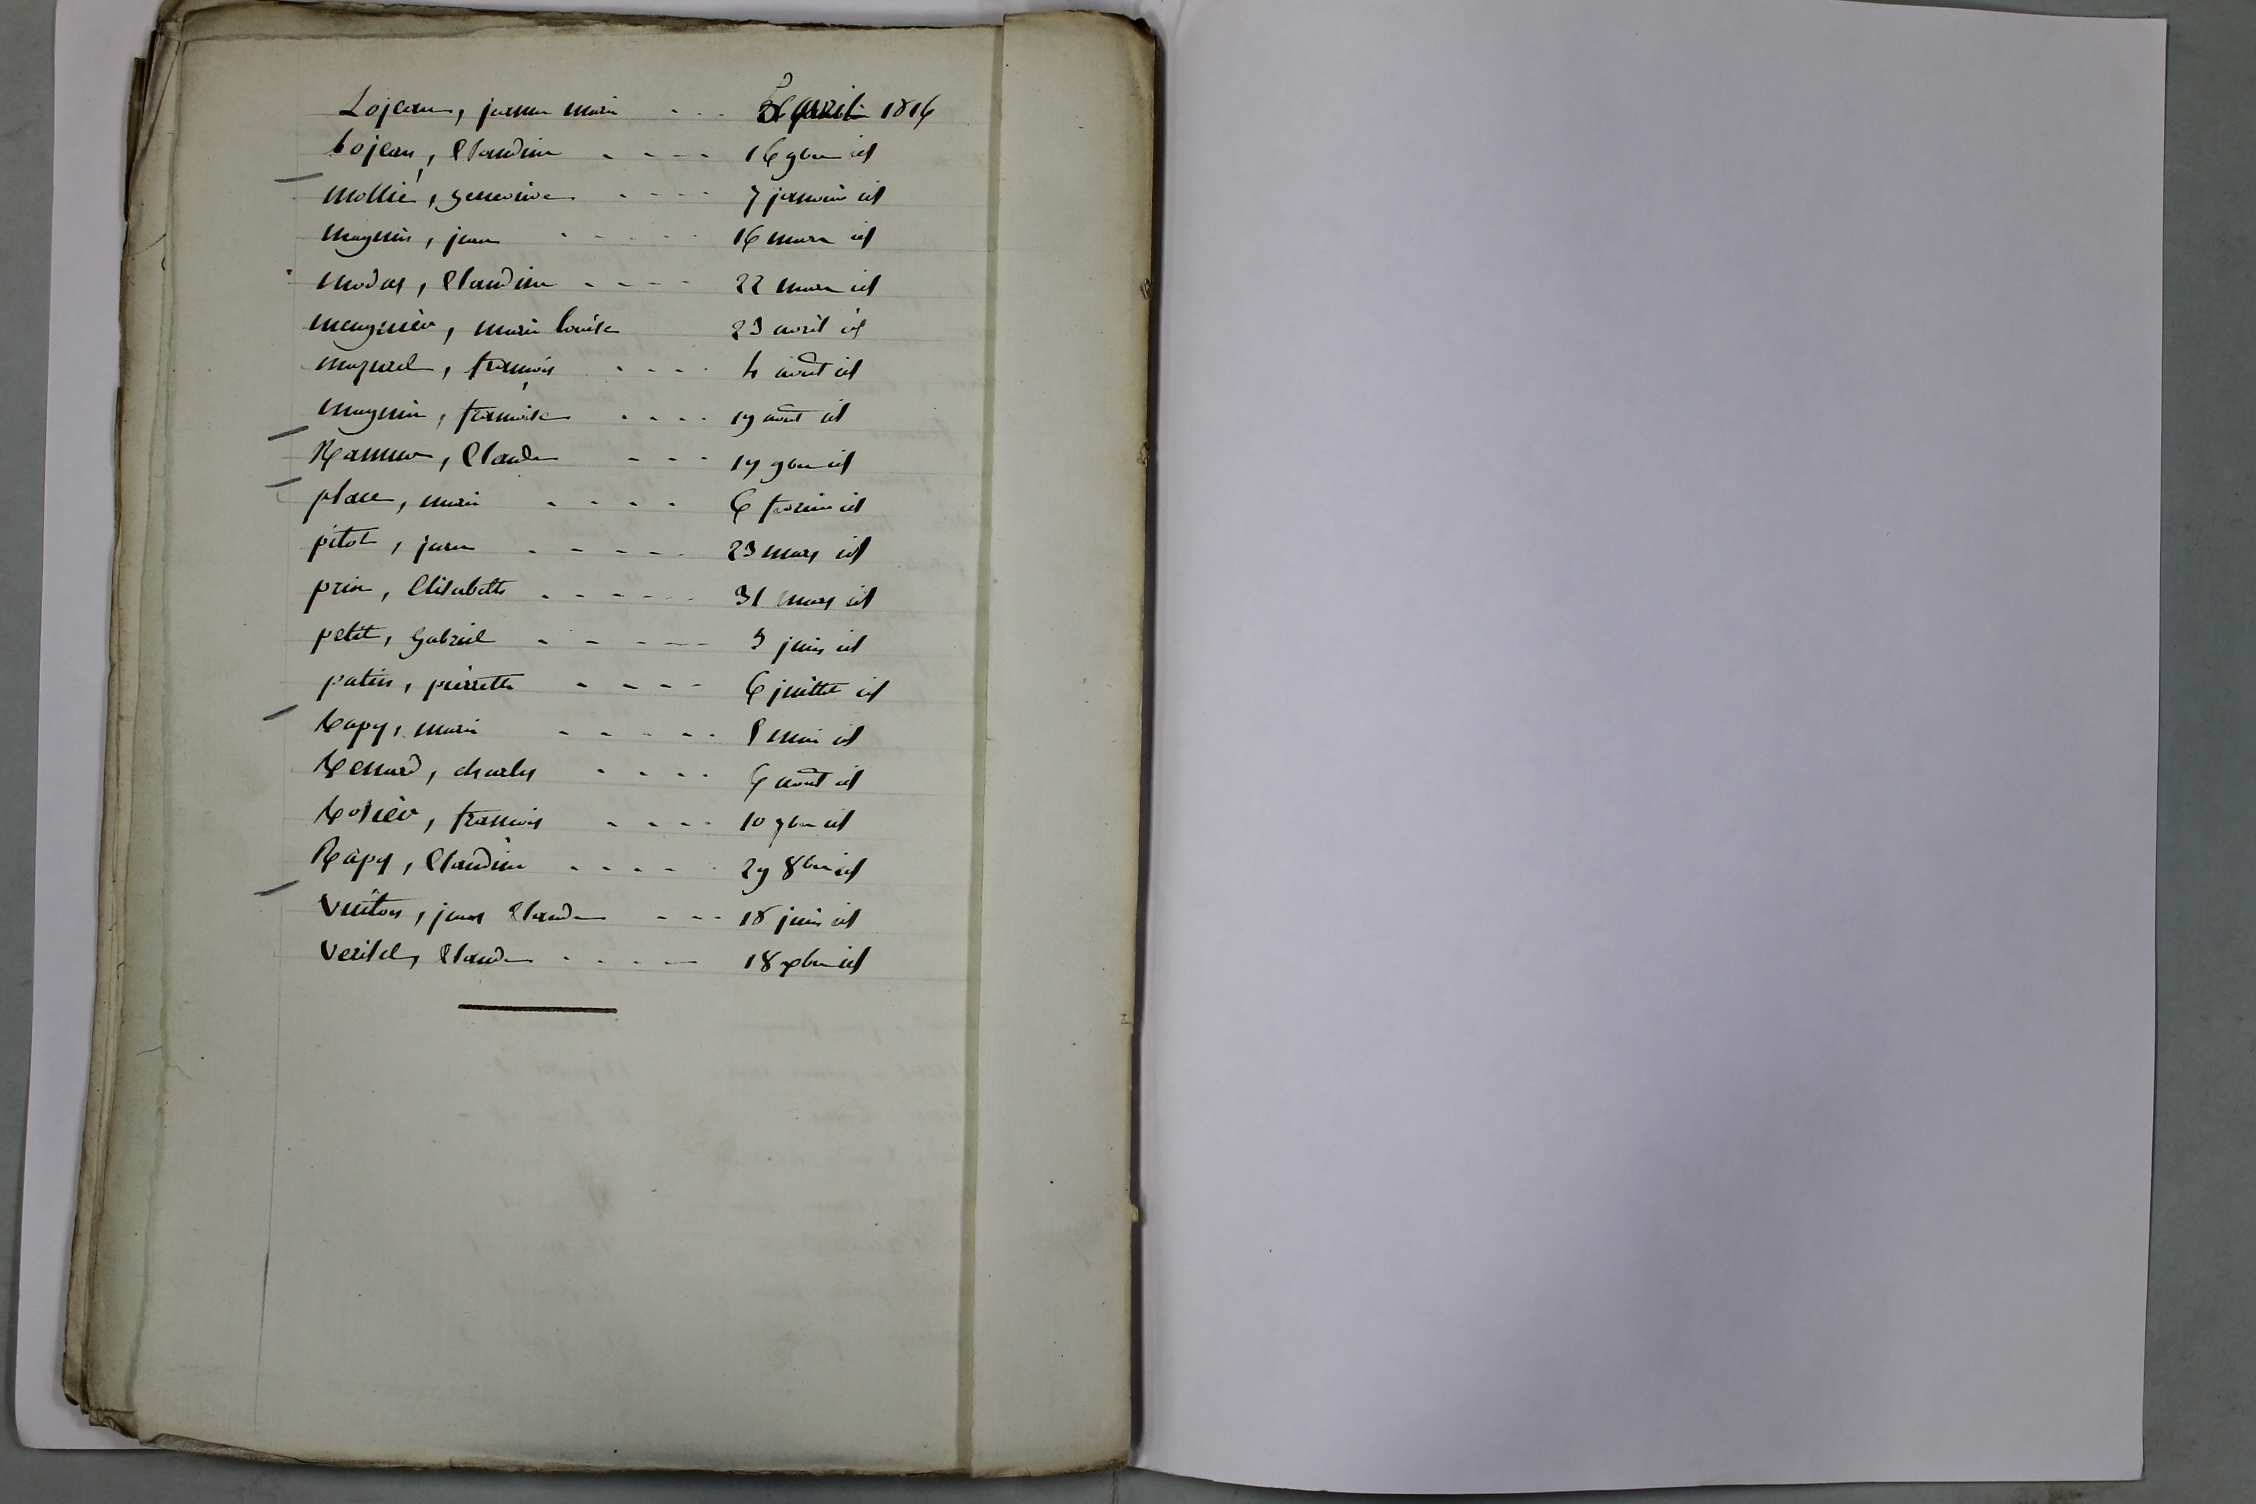 Lojean, jeanne marie - - - avril 1816
Lojean, Claudine - - - - 16 9bre id
Mollié, genevieve - - - - 7 janvier id
Magnin, jean - - - - 16 mars id
Modas, Claudine - - - - 22 mars id
Meugnier, marie louise 23 avril id
françois - - - - 4 août id
Magnin, françoise - - - - 19 août id
Claude - - - 14 9bre id
place, marie - - - - 6 fevrier id
pitot, jean - - - - - 23 mars id
prin, Elisabeth - - - - - - 31 mars id
petit, gabriel - - - - - 3 juin id
patin, pierrette - - - - 6 juillet id
Rapy, marie - - - - - 8 mai id
Renard, charles - - - - août id
françois - - - - 10 7bre id
Rapy, Claudine - - - - - 29 8bre id
Vuiton, jean Claude - - - 18 juin id
Claude - - - - 18 xbre id